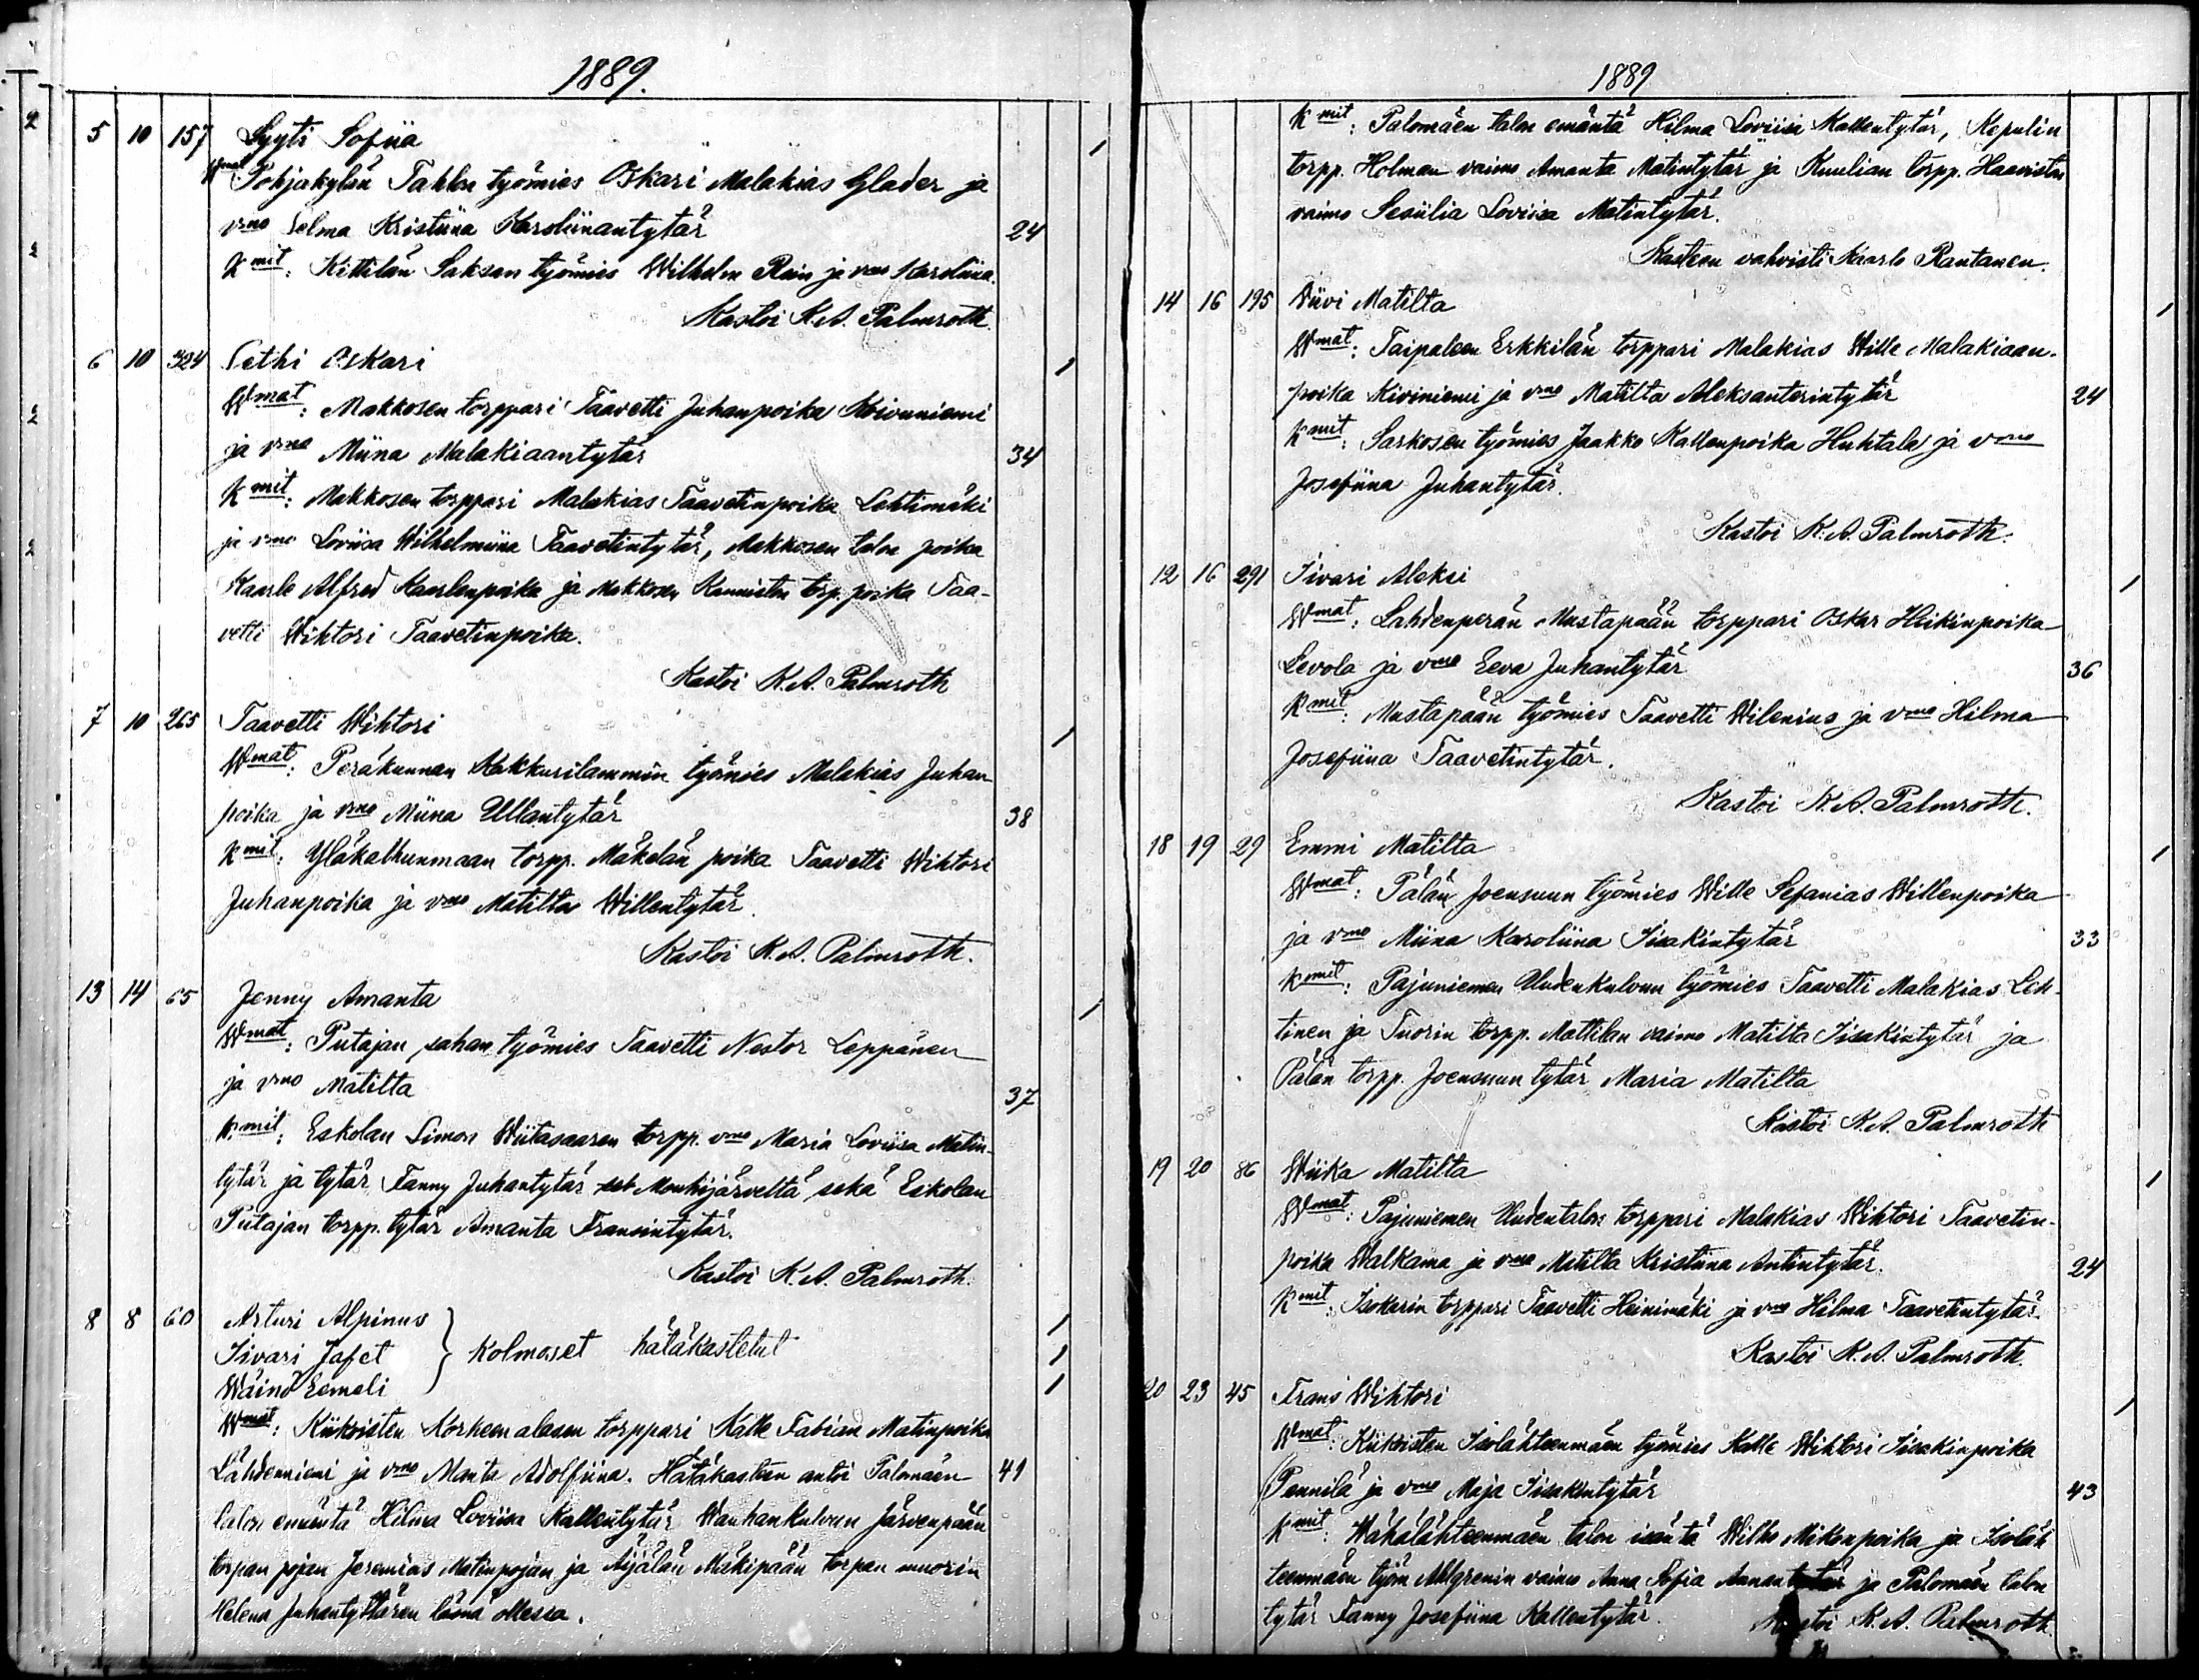 1889.
5 10 157 Lyyti Sofiia
Wmat Pohjakylän Tahlon työmies Oskari Malakias Glader ja
vmo Selma Kristiina Karoliinantytär 24
Kmit: Kittilän Saksan työmies Wilhelm Rein ja vmo Karoliina.
Kastoi K.A. Palmroth.
6 10 324 Sethi Oskari
Wmat: Makkosen torppari Taavetti Juhanpoika Koivuniemi
ja vmo Miina Malakiaantytär 34
Kmit: Makkosen torppari Malakias Taavetinpoika Lehtimäki
ja vmo Loviisa Wilhelmiina Taavetintytär, Makkosen talon poika
Kaarle Alfred Kaarlenpoika ja Makkosen Kanniston torp. poika Taa-
vetti Wihtori Taavetinpoika.
Kastoi K.A. Palmroth
7 10 265 Taavetti Wihtori
Wmat: Peräkunnan Kakkurilammin työmies Malakias Juhan
poika ja vmo Miina Ullantytär 38
Kmit: Yläkalkunmaan torpp. Mäkelän poika Taavetti Wihtori
Juhanpoika ja vmo Matilta Willentytär.
Kastoi K.A. Palmroth.
13 14 65 Jenny Amanta
Wmat: Putajan sahan työmies Taavetti Nestor Leppänen
ja vmo Matilta 37
Kmit: Eskolan Simon Wiitasaaren torpp. vmo Maria Loviisa Matin-
tytär ja tytär Fanny Juhantytär Mouhijärveltä sekä Eskolan
Putajan torpp. tytär Amanta Fransintytär.
Kastoi K.A. Palmroth.
8 8 60 Arturi Alpinus
Iivari Jafet } Kolmoset hätäkastetut
Wäinö Eemeli
Wmat: Kiikoisten Korkeenalasen torppari Kalle Fabian Matinpoika
Lähdenniemi ja vmo Manta Adolfiina. Hätäkasteen antoi Palomäen 41
talon emäntä Hilma Loviisa Kallentytär Wanhankulvun Järvenpään
torpan pojan Jeremias Matinpojan ja Äijälän Mäkipään torpan muorin
Helena Juhantyttären läsnä ollessa.
1889
Kmit: Palomäen talon emäntä Hilma Loviisa Kallentytär, Kepulin
torpp. Holman vaimo Amanta Matintytär ja Kuulian torpp. Haaviston
vaimo Sesiilia Loviisa Matintytär.
Kasteen vahvisti Kaarlo Rantanen.
14 16 195 Viivi Matilta
Wmat: Taipaleen Erkkilän torppari Malakias Wille Malakiaan-
poika Kiviniemi ja vmo Matilta Aleksanterintytär 24
Kmit: Sarkosen työmies Jaakko Kallenpoika Huhtala ja vmo
Josefiina Juhantytär.
Kastoi K.A. Palmroth.
12 16 291 Iivari Aleksi
Wmat: Lahdenperän Mustapään torppari Oskar Heikinpoika
Levola ja vmo Eeva Juhantytär 36
Kmit: Mustapään työmies Taavetti Wilenius ja vmo Hilma
Josefiina Taavetintytär.
Kastoi K.A. Palmroth.
18 19 29 Emmi Matilta
Wmat: Pälän Joensuun työmies Wille Sefanias Willenpoika
ja vmo Miina Karoliina Iisakintytär 33
Kmit: Pajuniemen Uudenkulvun työmies Taavetti Malakias Leh-
tinen ja Tuorin torpp. Mattilan vaimo Matilta Iisakintytär ja
Pälän torpp. Joensuun tytär Maria Matilta
Kastoi K.A. Palmroth
19 20 86 Wiika Matilta
Wmat: Pajuniemen Uudentalon torppari Malakias Wihtori Taavetin-
poika Walkama ja vmo Matilta Kristiina Antintytär. 24
Kmit: Isokarin torppari Taavetti Heinimäki ja vmo Hilma Taavetintytär.
Kastoi K.A. Palmroth.
20 23 45 Frans Wihtori
Wmat: Kiikoisten Isolähteenmäen työmies Kalle Wihtori Iisakinpoika
Pennilä ja vmo Maja Iisakintytär 43
Kmit: Wähälähteenmäen talon isäntä Wilho Mikonpoika ja Isoläh
teenmäen työm Ahlgrenin vaimo Anna Sofia Annantytär ja Palomäen talon
tytär Fanny Josefiina Kallentytär. Kastoi K.A. Palmroth.